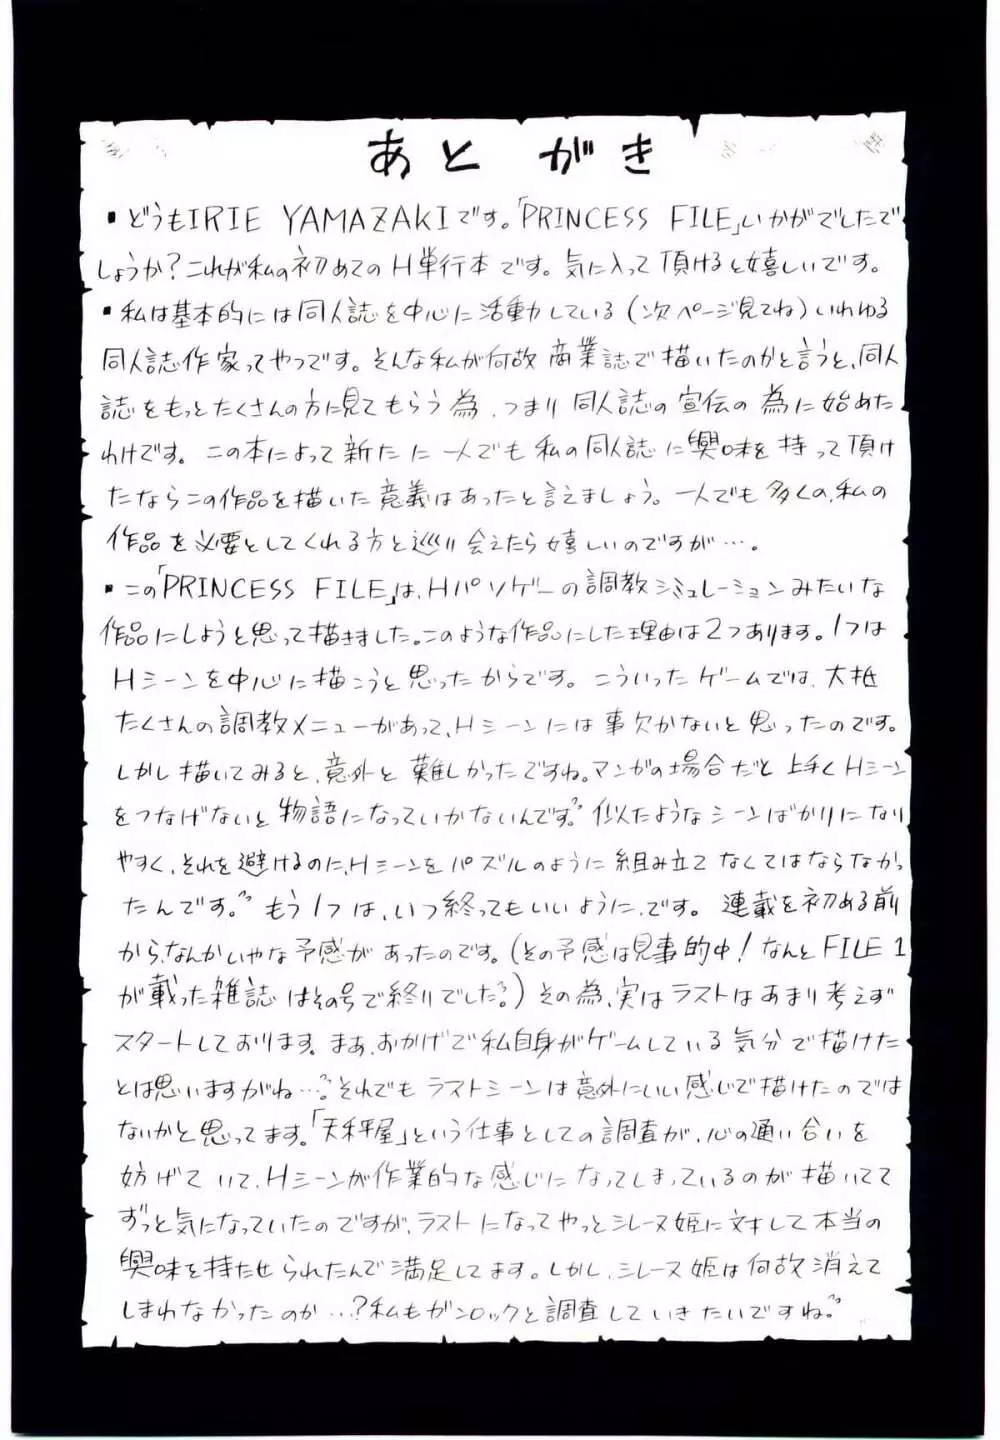 あとがき
▪どうもIRIE YAMAZAKIです。「PRINCESS FILE」いかがでしたで
しょうか?これが私の初めてのH単行本です。気に入って頂けると嬉しいです。
▪私は基本的には同人誌を中心に活動している(次ページ見てね)いわゆる
同人誌作家ってやつです。そんな私が何故商業誌で描いたのかと言うと、同人
誌をもっとたくさんの方に見てもらう為、つまり同人誌の宣伝の為に始めた
わけです。この本によって新たに一人でも私の同人誌に興味を持って頂け
たならこの作品を描いた意義はあったと言えましょう。一人でも多くの、私の
作品を必要としてくれる方と巡り会えたら嬉しいのですが…。
▪この「PRINCESS FILE」は、Hパソゲーの調教シミュレーションみたいな
作品にしようと思って描きました。このような作品にした理由は2つあります。1つは
Hシーンを中心に描こうと思ったからです。こういったゲームでは、大抵
たくさんの調教メニューがあって、Hシーンには事欠かないと思ったのです。
しかし描いてみると、意外と難しかったですね。マンガの場合だと上手くHシーン
をつなげないと物語になっていかないんです。似たようなシーンばかりになり
やすく、それを避けるのに、Hシーンをパズルのように組み立てなくてはならなかっ
たんです。もう1つは、いつ終ってもいいように、です。連載を初める前
から、なんかいやな予感があったのです。(その予感は見事的中!なんとFILE 1
が載った雑誌はその号で終りでした。)その為、実はラストはあまり考えず
スタートしております。まあ、おかげで私自身がゲームしている気分で描けた
とは思いますがね…。それでもラストシーンは意外にいい感じで描けたのでは
ないかと思ってます。「天秤屋」という仕事としての調査が、心の通い合いを
妨げていて、Hシーンが作業的な感じになってしまっているのが描いてて
ずっと気になっていたのですが、ラストになってやっとシレーヌ姫に対して本当の
興味を持たせられたんで満足してます。しかし、シレーヌ姫は何故消えて
しまわなかったのか…?私もガンロックと調査していきたいですね。